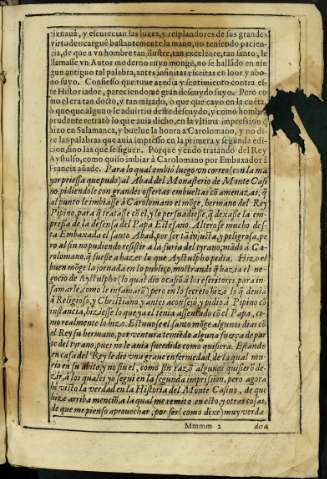 jaznauã, y escurecian las luzes, y resplandores de sus grandes
virtudes cargué bastantemente la mano, no teniendo pacien-
cia, de que a vn hombre tan ilustre, tan excelente, tan santo, le
llamasse vn Autor moderno suyo monge, no se hallãdo en nin
gun antiguo tal palabra, antes infinitas escritas en loor y abo-
no suyo. Confiesso que tuue azedia y sentimiento contra es-
te Historiador, pareciendome gran descuydo suyo. Pero co
mo el era tan docto, y tan mirado, o que que cayo en la cuẽta,
ò que que alguno le aduirtio deste descuydo, y como hombre
prudente retratò lo que auia dicho, en la vltima impression q̃
hizo en Salamanca, y buelue la honra a Carolomano, y no di-
ze las palabras que auia impresso en la primera y segunda edi-
cion, sino las que se siguen. Porque yendo tratando del Rey
Aystulfo, como quiso imbiar à Carolomano por Embaxador à
Francia añade. Para lo qual embiò luego vn correo (con la ma
yor priessa que pudo) al Abad del Monasterio de Monte Casi
no pidiendole con grandes ofertas embueltas cõ amenazas, q̃
al punto le imbiasse à Carolomano el mõge, hermano del Rey
Pipino, para q̃ tratasse cõ el, y le persuadiesse, q̃ dexasse la em
presa de la defensa del Papa Estefano. Alterose mucho des-
ta Embaxada el santo Abad, por ser tã injusta, y peligrosa, pe
ro al fin no pudiendo resistir a la furia del tyrano, mãdò a Ca-
rolomano, q̃ fuesse a hazer lo que Aystulpho pedia. Hizo el
buen mõge la jornada en lo publico, mostrando q̃ hazia el ne-
gocio de Aystulpho (lo qual dio ocasiõ a los escritores para in-
famarle, como le infamarõ) pero en lo secreto hizo lo q̃ deuia
à Religioso, y Christiano, y antes aconsejò, y pidio à Pipino cõ
instancia, hiziesse lo que ya el tenia assentado cõ el Papa, co-
mo realmente lo hizo. Estuuose el santo mõge algunos dias cõ
el Rey su hermano, por ventura temiẽdo alguna fuerça de par
te del tyrano, pues no le auia sucedido como quisiera. Estando
en casa del Rey le dio vna graue enfermedad, de la qual mu-
rio en su Abito, y no sin el, como sin razõ algunos quisierõ de-
zir, à los quales yo segui en la segunda impression, pero agora
hẽ visto la verdad en la Historia del Monte Casino, de que
hize arriba menciõ, a la qual me remito en esto, y otras cosas,
de que me pienso aprouechar, por ser (como dixe) muy verda
Mmmm 2